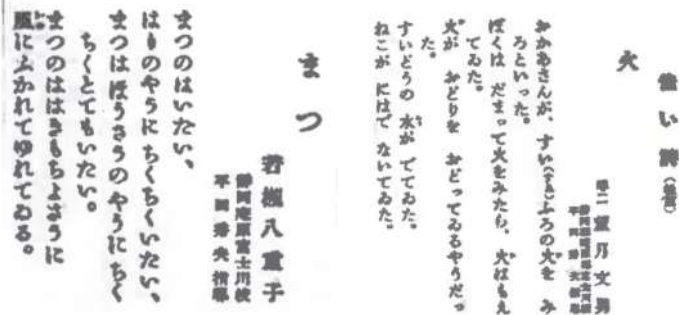 佳い詩(推薦)
火
尋二 望月文男
静岡庵原富士川校
平岡秀央指導
おかあさんが、すい(すゐ)ふろの火を み
ろといった。
ぼくは だまって火をみたら、火はもえ
てゐた。
火が おどりを おどってゐるやうだっ
た。
すいどうの 水が でてゐた。
ねこが にはで ないてゐた。
まつ
若槻八重子
静岡庵原富士川校
平岡秀央指導
まつのはいたい、
はりのやうに ちくちくいたい、
まつはほうさうのやうに ちく
ちくとてもいたい。
まつのははきもちよささうに
風にふかれてゆれてゐる。